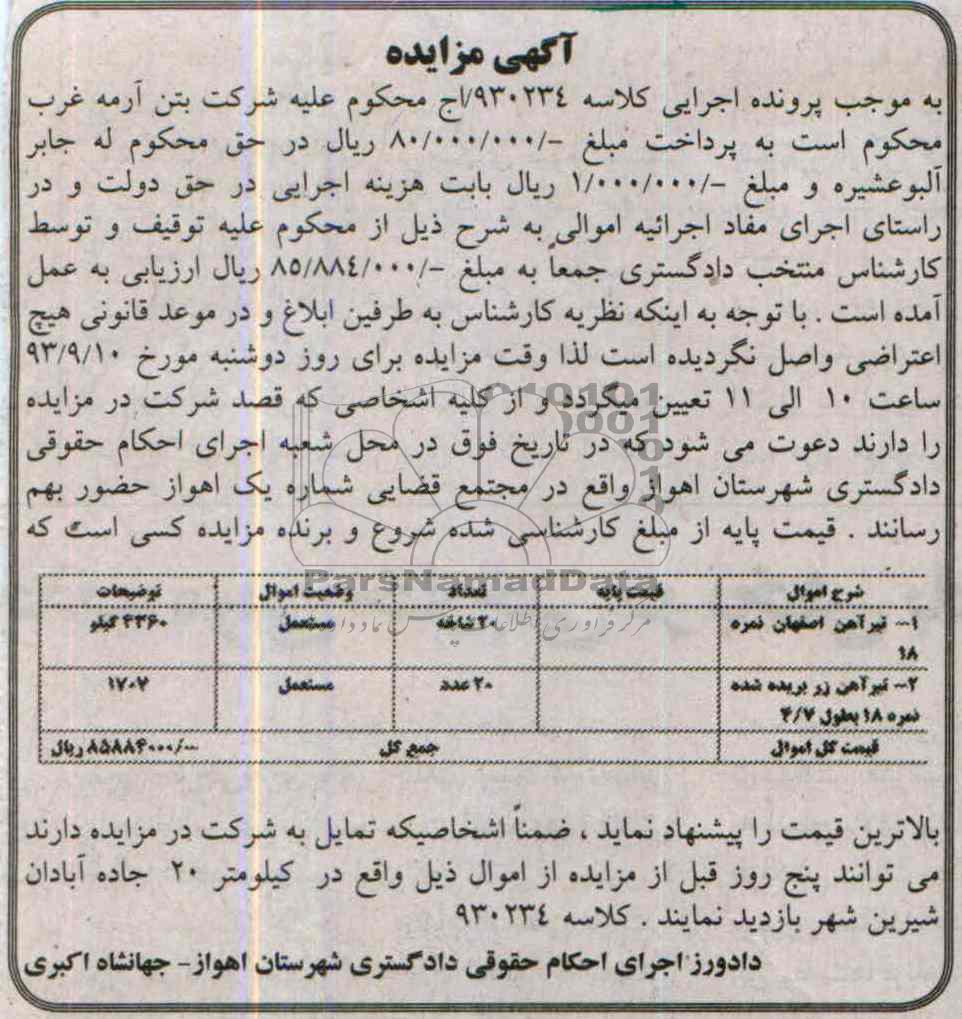 آگهی مزایده
به موجب پرونده اجرایی کلاسه ۹۳۰۲۳٤/اج محکوم علیه شرکت بتن آرمه غرب
محکوم است به پرداخت مبلغ -/۸۰/۰۰۰/۰۰۰ ریال در حق محکوم له جابر
آلبوعشیره و مبلغ -/۱/۰۰۰/۰۰۰ ریال بابت هزینه اجرایی در حق دولت و در
راستای اجرای مفاد اجرائیه اموالی به شرح ذیل از محکوم علیه توقیف و توسط
کارشناس منتخب دادگستری جمعاً به مبلغ -/۸۵/۸۸٤/۰۰۰ ریال ارزیابی به عمل
آمده است . با توجه به اینکه نظریه کارشناس به طرفین ابلاغ و در موعد قانونی هیچ
اعتراضی واصل نگردیده است لذا وقت مزایده برای روز دوشنبه مورخ ۹۳/۹/۱۰
ساعت ۱۰ الی ۱۱ تعیین میگردد و از کلیه اشخاصی که قصد شرکت در مزایده
را دارند دعوت می شود که در تاریخ فوق در محل شعبه اجرای احکام حقوقی
دادگستری شهرستان اهواز واقع در مجتمع قضایی شماره یک اهواز حضور بهم
رسانند . قیمت پایه از مبلغ کارشناسی شده شروع و برنده مزایده کسی است که
ParsNamadData
شرح اموال قیمت پایه تعداد وضعیت اموال توضیحات
۱- تیرآهن اصفهان نمره ۲۰ شاخه مستعمل ۴۳۶۰ کیلو
۱۸
۲- تیرآهن زر بریده شده ۲۰ عدد مستعمل ۱۷۰۷
نمره ۱۸ بطول ۴/۷
قیمت کل اموال جمع کل ۸۵۸۸۴۰۰۰/۰۰ ریال
بالاترین قیمت را پیشنهاد نماید ، ضمناً اشخاصیکه تمایل به شرکت در مزایده دارند
می توانند پنج روز قبل از مزایده از اموال ذیل واقع در کیلومتر ۲۰ جاده آبادان
شیرین شهر بازدید نمایند . کلاسه ۹۳۰۲۳٤
دادورز اجرای احکام حقوقی دادگستری شهرستان اهواز- جهانشاه اکبری